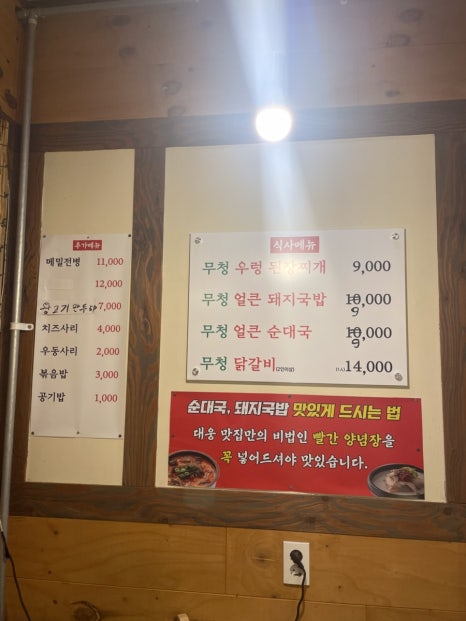 추가메뉴
메밀전병 11,000
12,000
7,000
치즈사리 4,000
우동사리 2,000
볶음밥 3,000
공기밥 1,000
식사메뉴
무청 우렁 된장찌개 9,000
무청 얼큰 돼지국밥 10,000
9
무청 얼큰 순대국 10,000
9
무청 닭갈비(2인이상) (1人)14,000
순대국, 돼지국밥 맛있게 드시는 법
대웅 맛집만의 비법인 빨간 양념장을
꼭 넣어드셔야 맛있습니다.